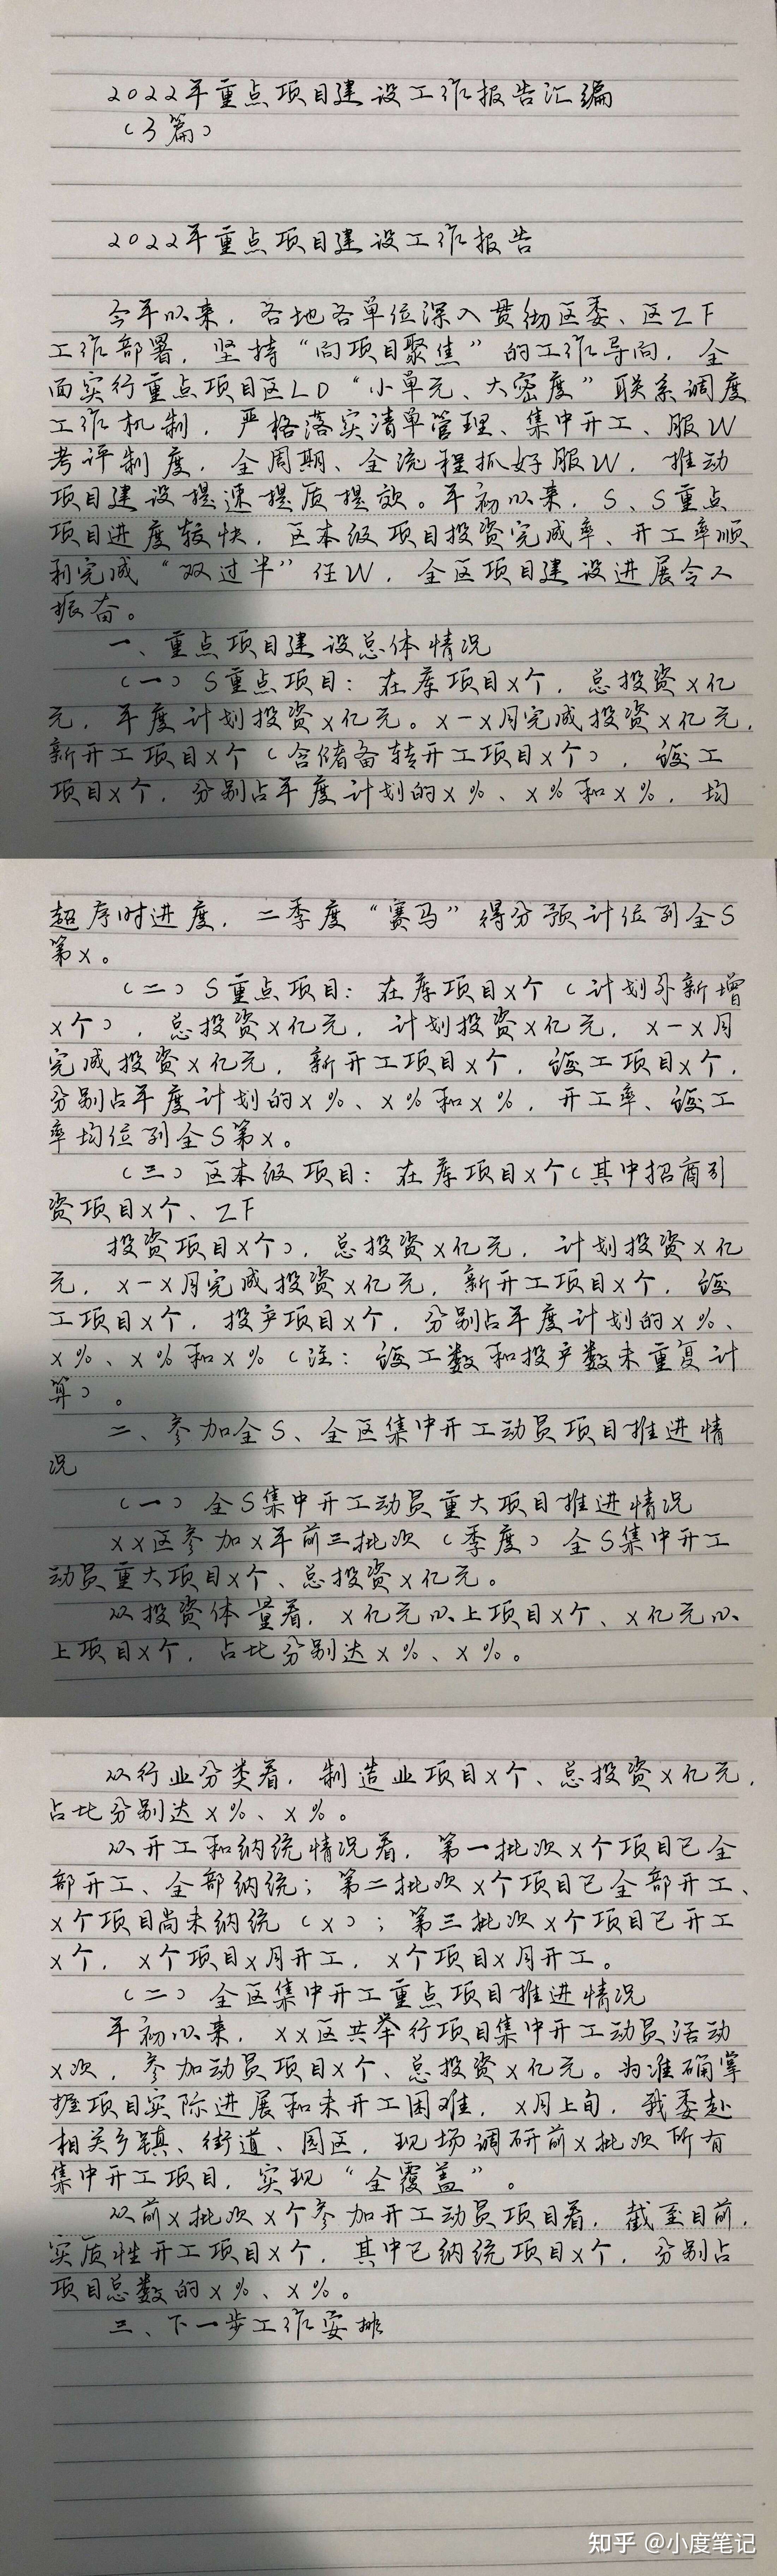 2022年重点项目建设工作报告汇编
（3篇）
2022年重点项目建设工作报告
今年以来，各地各单位深入贯彻区委、区ZF
工作部署，坚持“向项目聚焦”的工作导向，全
面实行重点项目区LD“小单元、大密度”联系调度
工作机制，严格落实清单管理、集中开工、服W
考评制度，全周期、全流程抓好服W，推动
项目建设提速提质提效。年初以来，S、S重点
项目进度较快，区本级项目投资完成率、开工率顺
利完成“双过半”任W，全区项目建设进展令人
振奋。
一、重点项目建设总体情况
（一）S重点项目：在库项目x个，总投资x亿
元，年度计划投资x亿元。x-x月完成投资x亿元，
新开工项目x个（含储备转开工项目x个），竣工
项目x个，分别占年度计划的x%、x%和x%，均
超序时进度，二季度“赛马”得分预计位列全S
第x。
（二）S重点项目：在库项目x个（计划外新增
x个），总投资x亿元，计划投资x亿元，x-x月
完成投资x亿元，新开工项目x个，竣工项目x个，
分别占年度计划的x%、x%和x%，开工率、竣工
率均位列全S第x。
（三）区本级项目：在库项目x个（其中招商引
资项目x个、ZF
投资项目x个），总投资x亿元，计划投资x亿
元，x-x月完成投资x亿元，新开工项目x个，竣
工项目x个，投产项目x个，分别占年度计划的x%、
x%、x%和x%（注：竣工数和投产数未重复计
算）。
二、参加全S、全区集中开工动员项目推进情
况
（一）全S集中开工动员重大项目推进情况
xx区参加x年前三批次（季度）全S集中开工
动员重大项目x个、总投资x亿元。
从投资体量看，x亿元以上项目x个、x亿元以
上项目x个，占比分别达x%、x%。
从行业分类看，制造业项目x个、总投资x亿元，
占比分别达x%、x%。
从开工和纳统情况看，第一批次x个项目已全
部开工、全部纳统；第二批次x个项目已全部开工、
x个项目尚未纳统（x）；第三批次x个项目已开工
x个，x个项目x月开工，x个项目x月开工。
（二）全区集中开工重点项目推进情况
年初以来，xx区共举行项目集中开工动员活动
x次，参加动员项目x个、总投资x亿元。为准确掌
握项目实际进展和未开工困难，x月上旬，我委赴
相关乡镇、街道、园区，现场调研前x批次所有
集中开工项目，实现“全覆盖”。
从前x批次x个参加开工动员项目看，截至目前，
实质性开工项目x个，其中已纳统项目x个，分别占
项目总数的x%、x%。
三、下一步工作安排
知乎 @小度笔记